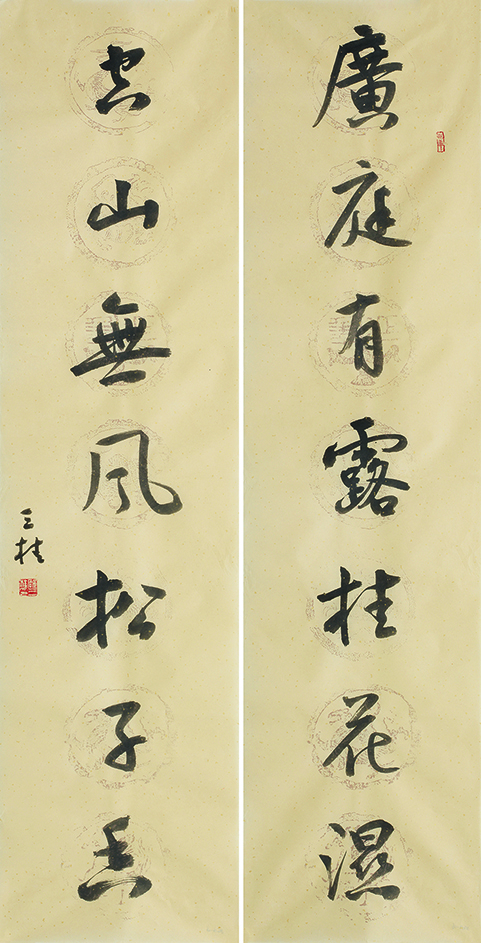 廣庭有露桂花湿
空山無風松子香
三桂